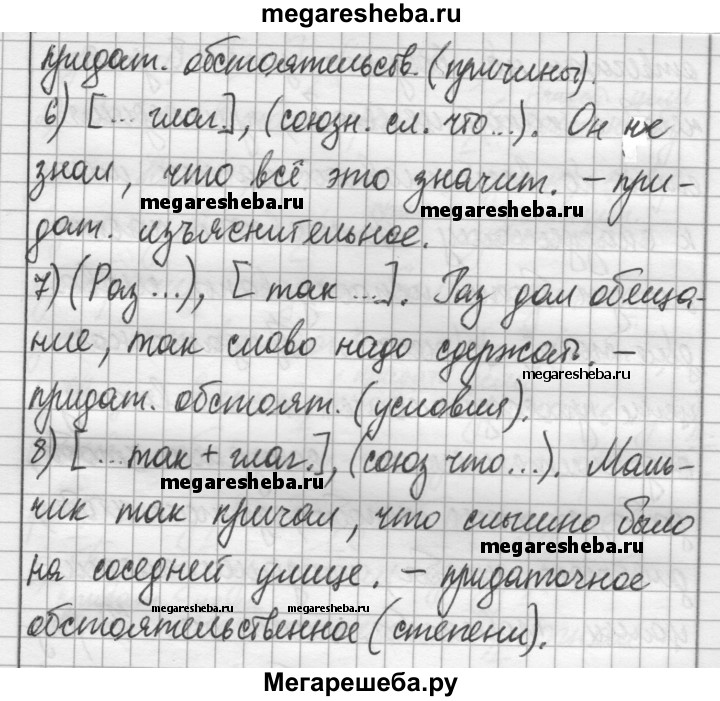 megaresheba.ru
придат. обстоятельств. (причины).
6) [... глаг.], (союзн. сл. что...). Он не
знал, что всё это значит. – при-
megaresheba.ru megaresheba.ru
дат. изъяснительное.
7) (Раз...), [так...]. Раз дал обеща-
ние, так слово надо сдержать. –
megaresheba.ru
придат. обстоят. (условия).
8) [... так + глаг.], (союз что...). Маль-
megaresheba.ru
чик так кричал, что слышно было
megaresheba.ru
на соседней улице. – придаточное
megaresheba.ru megaresheba.ru
обстоятельственное (степени).
Мегарешеба.ру